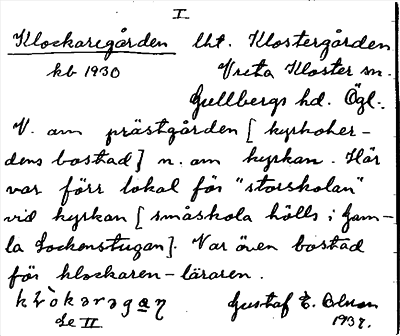 I
Klockaregården lht. Klostergården
kb 1930 Vreta Kloster sn.
Gullbergs hd. Ögl.
V. om prästgården [kyrkoher-
dens bostad] n. om kyrkan. Här
var förr lokal för "storskolan"
vid kyrkan [småskola hölls i Gam-
la Sockenstugan]. Var även bostad
för klockaren-läraren.
Gustaf E. Olsson
Se II 1937.